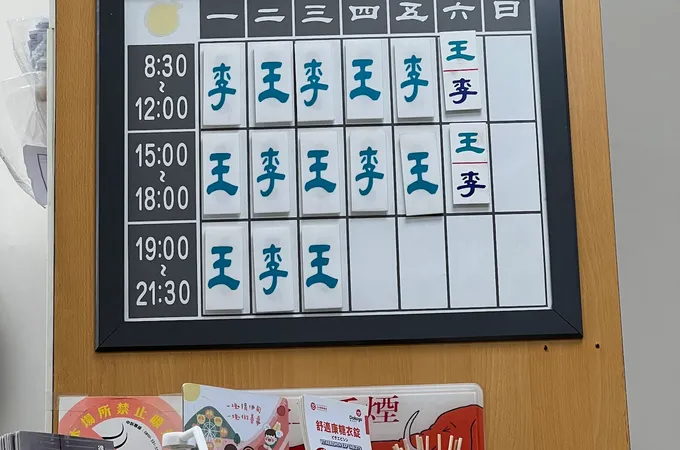 一 二 三 四 五 六 日
8:30 ~ 12:00 李 王 李 王 李 王 李
15:00 ~ 18:00 王 李 王 李 王 王 李
19:00 ~ 21:30 王 李 王
本場所禁止吸
煙
舒適康糖衣錠